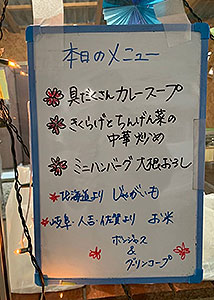 本日のメニュー
具だくさんカレースープ
きくらげとちんげん菜の
中華炒め
ミニハンバーグ 大根おろし
北海道より じゃがいも
岐阜・人吉・佐賀より お米
ボンジャス
&
グリンコープ